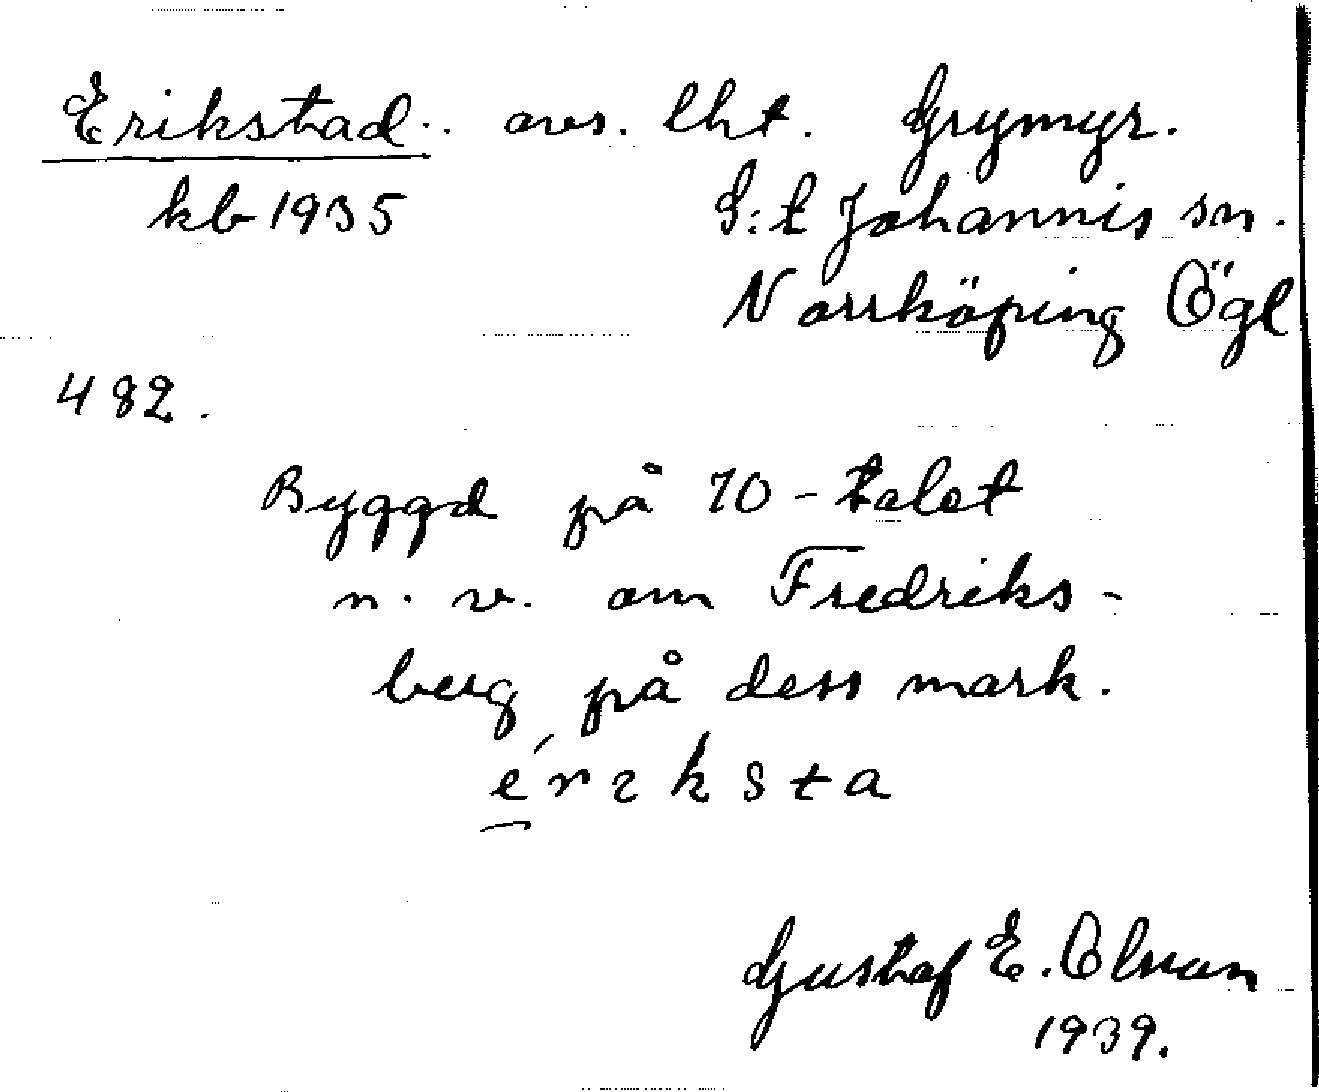 Erikstad.. avs. lht. Grymyr.
kb 1935 S:t Johannis sn.
Norrköping Ögl
482.
Byggd på 70-talet
n. v. om Fredriks-
berg på dess mark.
érıksta
Gustaf E. Olsson
1939.